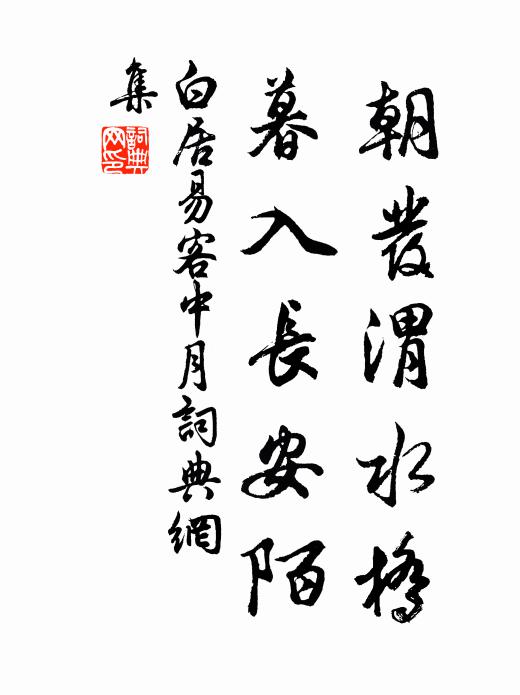 朝發渭水橋
暮入長安陌
白居易客中月詞典網
集
詞典
网印